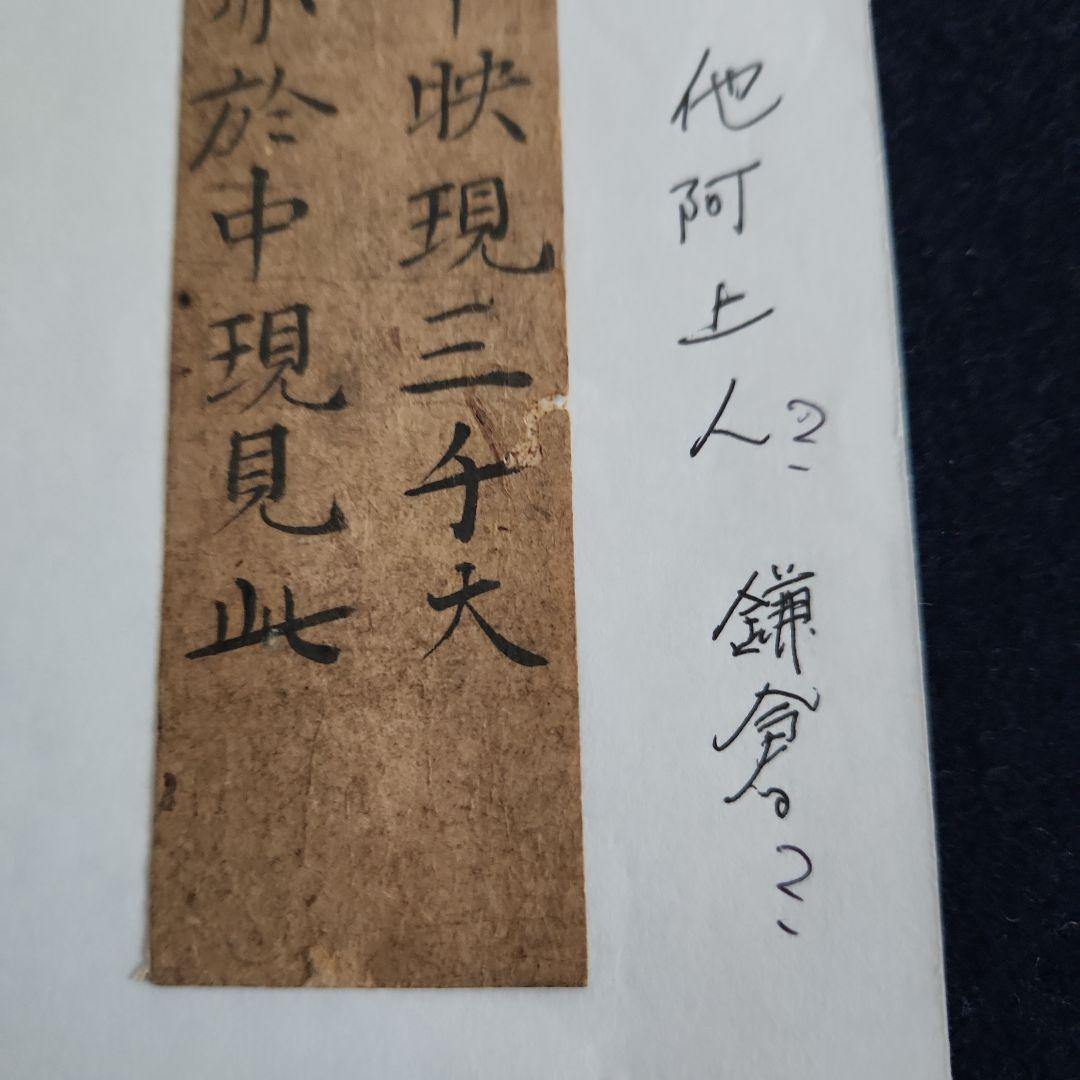 他阿上人? 鎌倉?
映現三千大
於中現見此